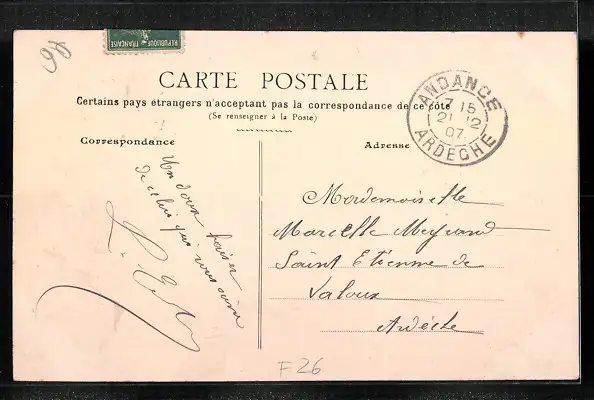 98
REPUBLIQUE FRANÇAISE
CARTE POSTALE
Certains pays étrangers n'acceptent pas la correspondance de ce côté
(Se renseigner à la Poste)
ANDANCE
7 15
21 12
07
ARDECHE
Correspondance
Adresse
Un doux baiser
de celui qui vous aime
Mademoiselle
Marcelle Meyrand
Saint Etienne de
Valoux
Ardèche
F26